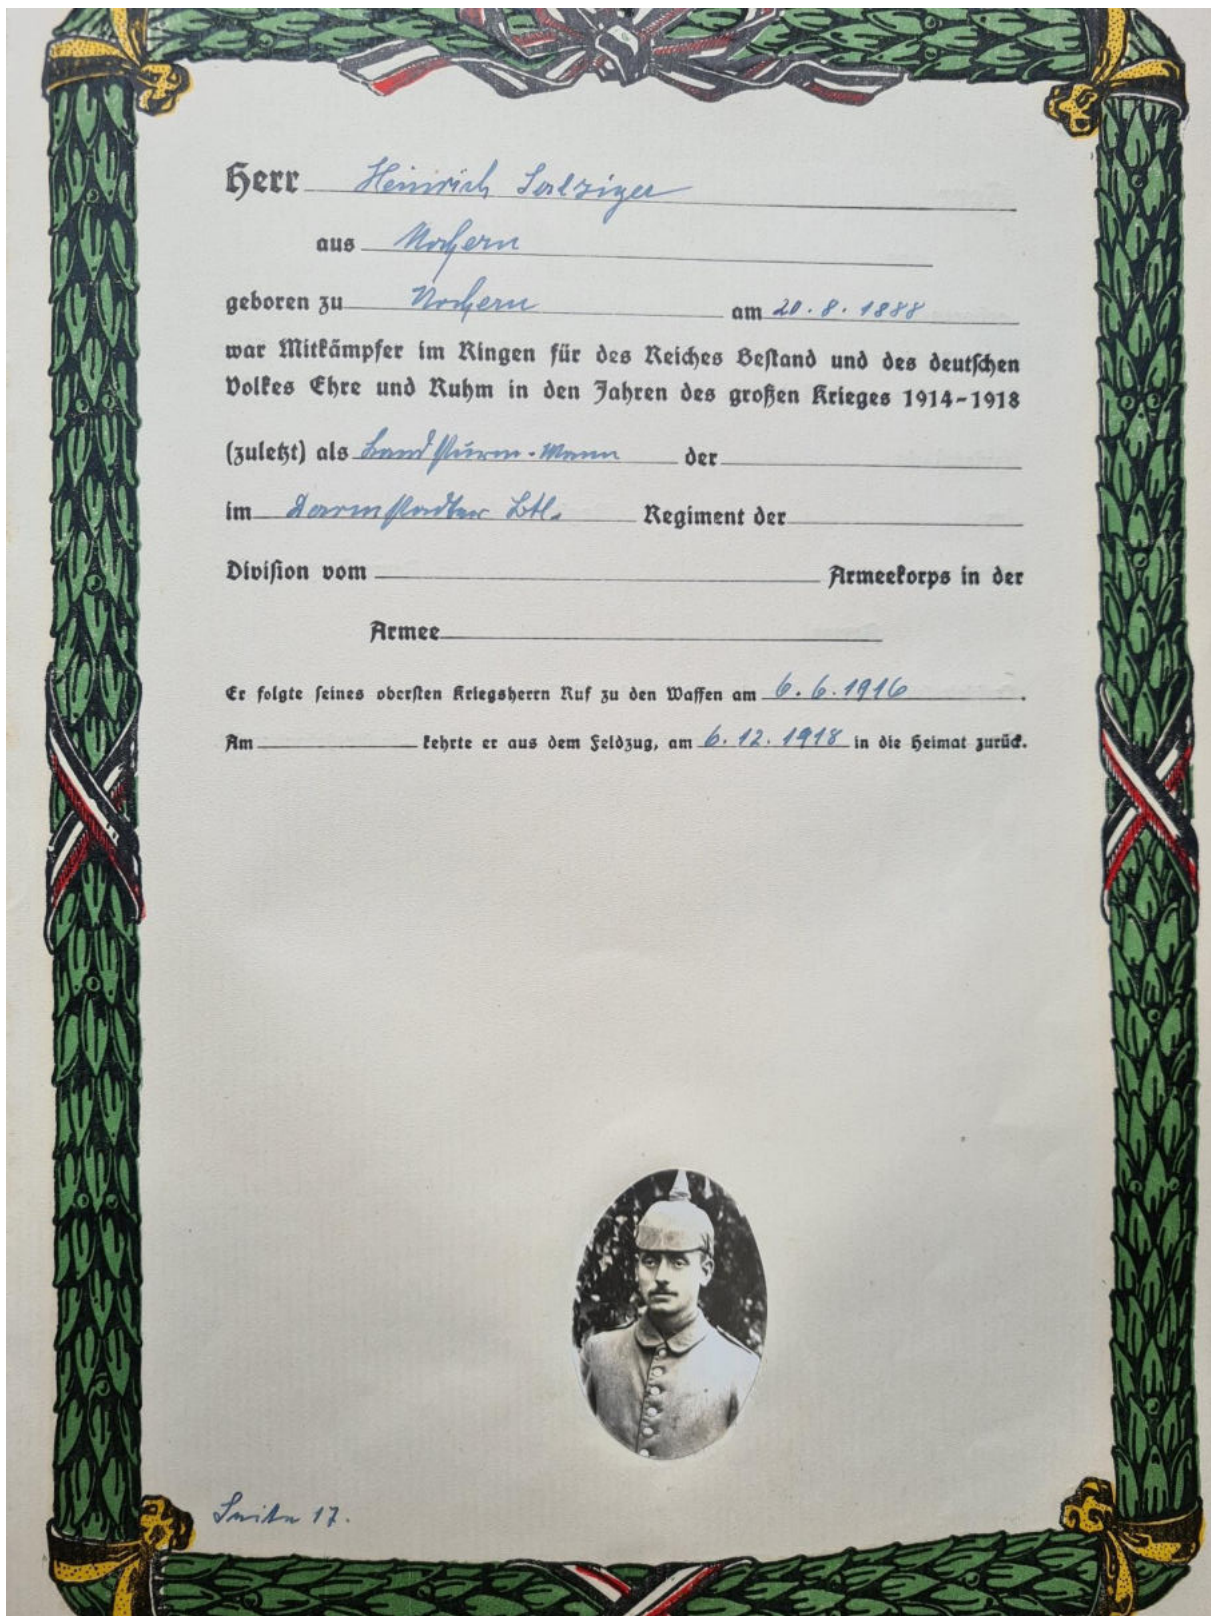 Herr Heinrich Salziger
aus Nochern
geboren zu Nochern am 20.8.1888
war Mitkämpfer im Ringen für des Reiches Bestand und des deutschen
Volkes Ehre und Ruhm in den Jahren des großen Krieges 1914-1918
(zuletzt) als Landsturm-Mann der
im Darmstadter Btl. Regiment der
Division vom Armeekorps in der
Armee
Er folgte seines obersten Kriegsherrn Ruf zu den Waffen am 6.6.1916.
Am kehrte er aus dem Feldzug, am 6.12.1918 in die Heimat zurück.
Seite 17.